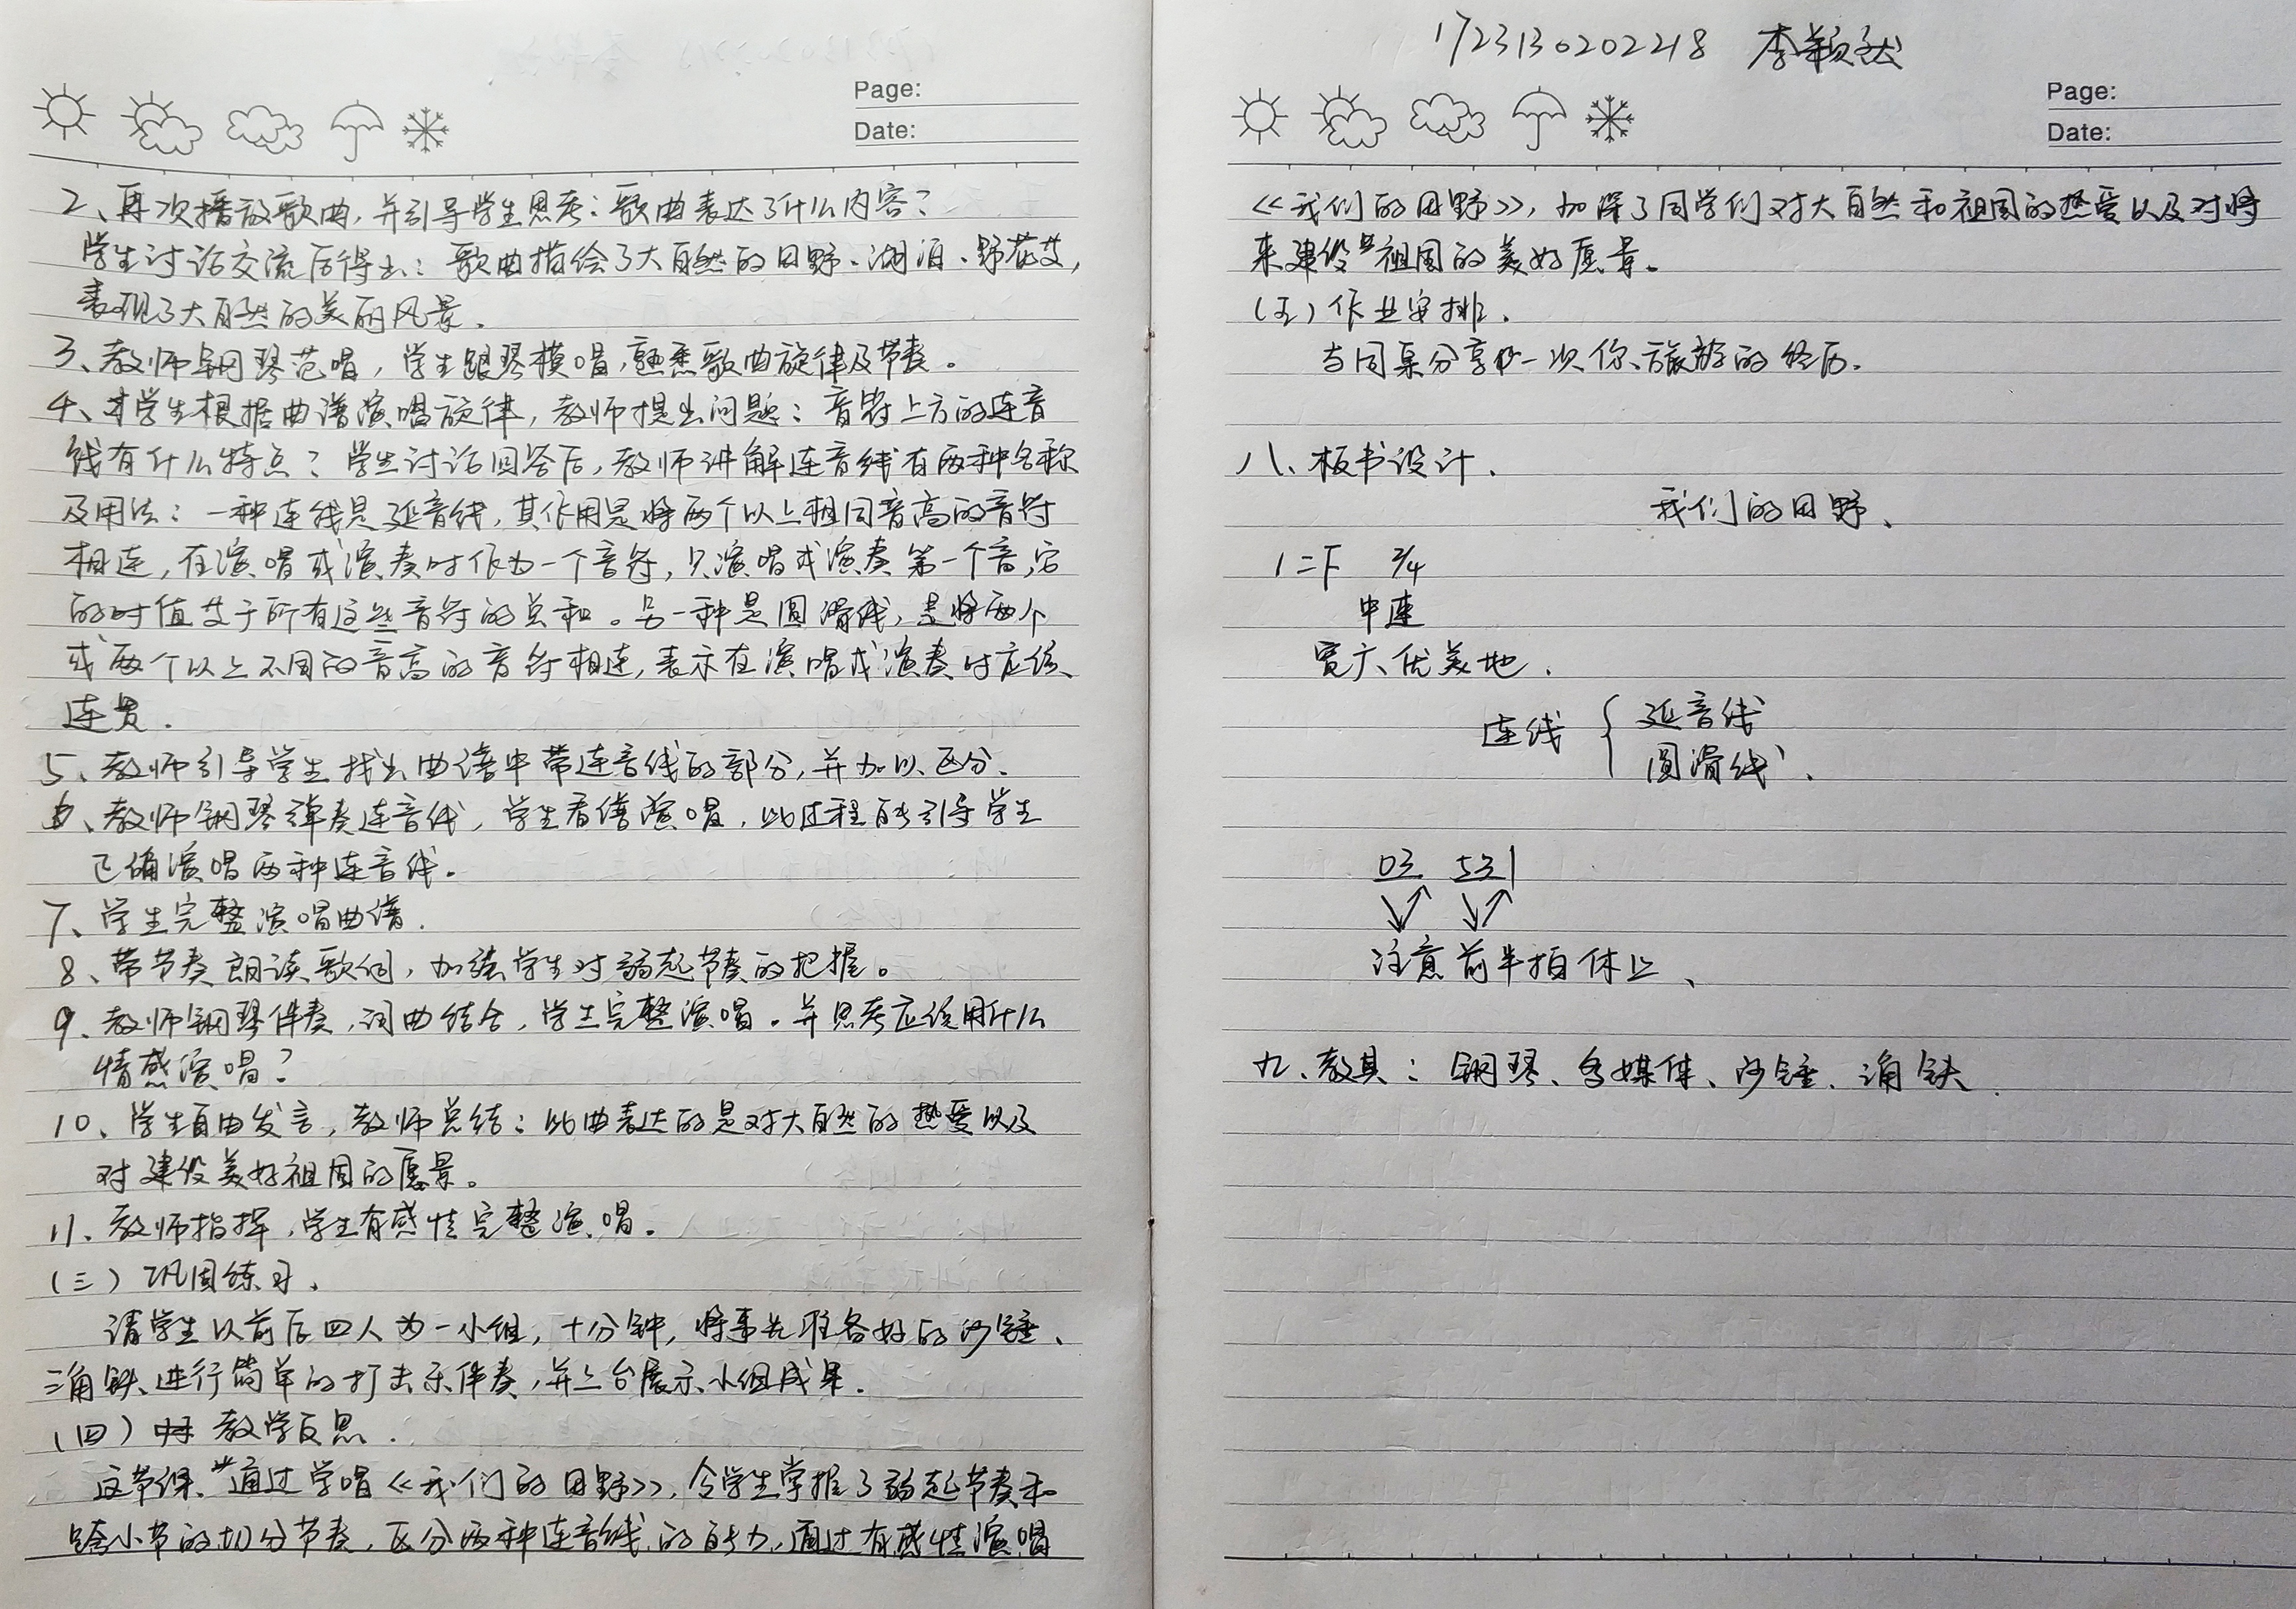 Page:
Date:
2、再次播放歌曲，并引导学生思考：歌曲表达了什么内容？
学生讨论交流后得出：歌曲描绘了大自然的田野、湖泊、野花等，
表现了大自然的美丽风景。
3、教师钢琴范唱，学生跟琴模唱，熟悉歌曲旋律及节奏。
4、学生根据曲谱演唱旋律，教师提出问题：音符上方的连音
线有什么特点？学生讨论回答后，教师讲解连音线有两种名称
及用法：一种连线是延音线，其作用是将两个以上相同音高的音符
相连，在演唱或演奏时作为一个音符，只演唱或演奏第一个音，它
的时值等于所有这些音符的总和。另一种是圆滑线，是将两个
或两个以上不同的音高的音符相连，表示在演唱或演奏时应该
连贯．
5、教师引导学生找出曲谱中带连音线的部分，并加以区分．
6、教师钢琴弹奏连音线，学生看谱演唱，此过程能引导学生
正确演唱两种连音线。
7、学生完整演唱曲谱．
8、带节奏朗读歌词，加强学生对弱起节奏的把握。
9、教师钢琴伴奏，词曲结合，学生完整演唱。并思考应该用什么
情感演唱？
10、学生自由发言，教师总结：此曲表达的是对大自然的热爱以及
对建设美好祖国的愿景。
11、教师指挥，学生有感情完整演唱。
（三）巩固练习．
请学生以前后四人为一小组，十分钟，将事先准备好的沙锤、
三角铁、进行简单的打击乐伴奏，并上台展示小组成果．
（四）教学反思．
这节课，通过学唱《我们的田野》，令学生掌握了弱起节奏和
跨小节的切分节奏，区分两种连音线的能力，通过有感情演唱
1723130202218 李颖
Page:
Date:
《我们的田野》，加深了同学们对大自然和祖国的热爱以及对将
来建设祖国的美好愿景。
（五）作业安排．
与同桌分享一次你旅游的经历．
八、板书设计．
我们的田野、
1=F 2/4
中速
宽广、优美地．
连线 { 延音线
圆滑线．
03 531
注意前半拍休止、
九、教具：钢琴、多媒体、沙锤、三角铁．